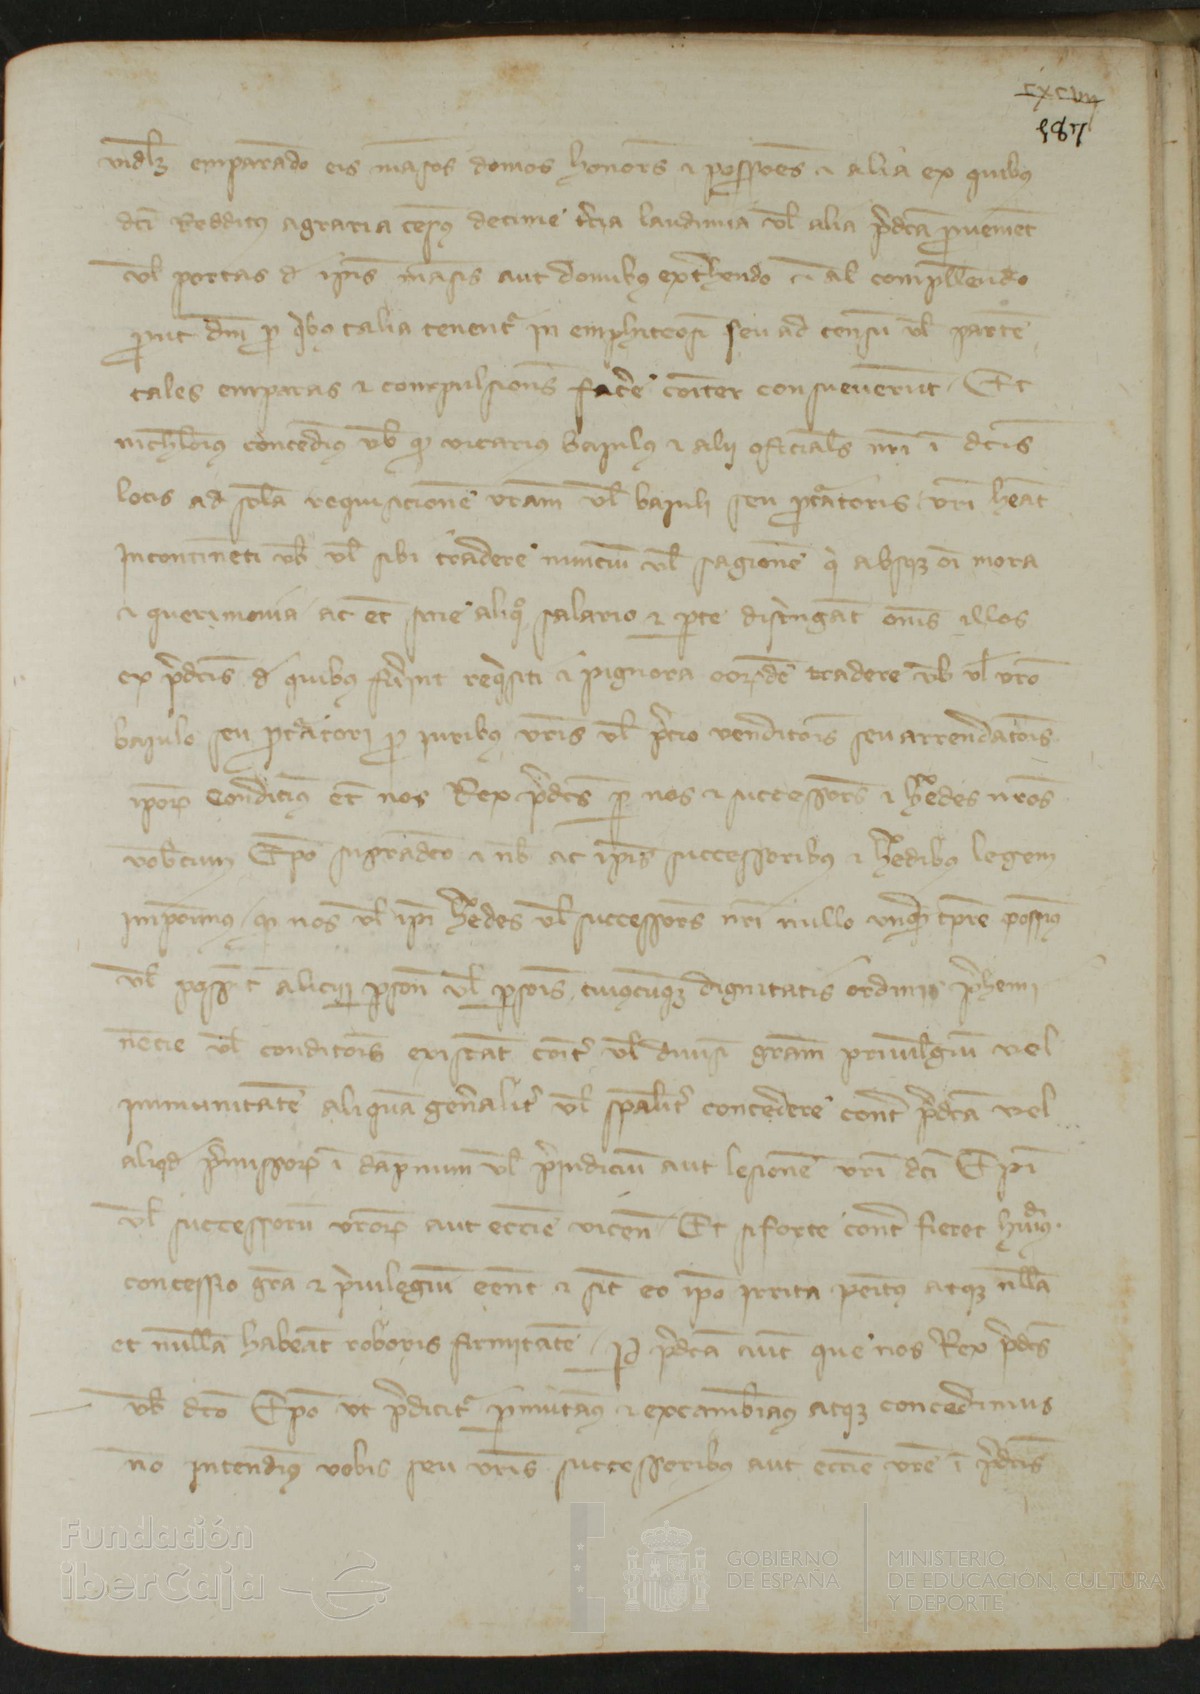 cxcvii
187
vidlz emparando eis masos domos honors & possioes & alia ex quibus
dci Redditus agraria cesus decime tercia laudimia vl alia predca proveniet
vl portas d ipis masis aut domibus extrahendo & al compellendo
prout dni pro quibus talia tenentur in emphiteosi seu ad censu vl parte
tales emparas & compulsions facere coiter consueverunt Et
nichilomius concedimus vob quod vicarius baiulus & alii oficials nri i dcis
locis ad sola requisicione vram vl baiuli seu procuratoris vri heant
Incontineti vob vl sibi tradere nunciu vl sagione qui absque oi mora
& querimonia ac et sine aliquo salario & parte distringat omis illos
ex predcis d quibus fuerint requisiti & pignora eorumde tradere vob vl vro
baiulo seu procuratori pro iuribus vris vl precio venditois seu arrendatois
ipor Condicimus et nos Rex predcs per nos & successors & heredes nros
vobcum Epo supradco & nb ac ipis successoribus & heredibus legem
imponimus quod nos vl ipi heredes vl successors nri nullo unquam tpre possimus
vl possit alicui persone vl persois cuiuscumque dignitatis ordinis prehemi
nencie vl conditois existat contra vl divisi gram privilegiu vel
immunitate aliqua generaliter vl spaliter concedere contra predca vel
aliqd premissor i dapnum vl preiudiciu aut lesione vri dci Epi
vl successoru vror aut eccie vicen Et si forte contra fieret huiusmodi
concessio gra & privilegiu eent & sit eo ipo irrita penitus atque nulla
et nulla habeat roboris firmitate Per predca aut que nos Rex predcs
vob dco Epo ut predicitur permutamus & excambiamus atque concedimus
no intendimus vobis seu vris successoribus aut eccie vre i predcis
Fundación
iberCaja
GOBIERNO
DE ESPAÑA
MINISTERIO
DE EDUCACIÓN, CULTURA
Y DEPORTE